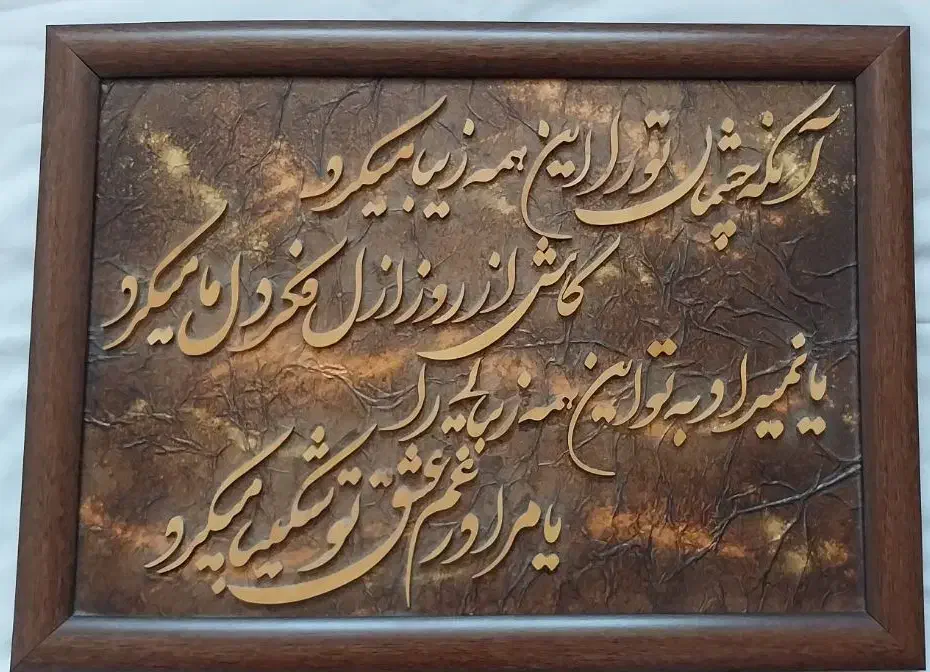 آنکه چشمان تو را این همه زیبا میکرد
کاش از روز ازل فکر دل ما میکرد
یا نمیداد به تو این همه زیبائی را
یا مرا در غم عشق تو شکیبا میکرد